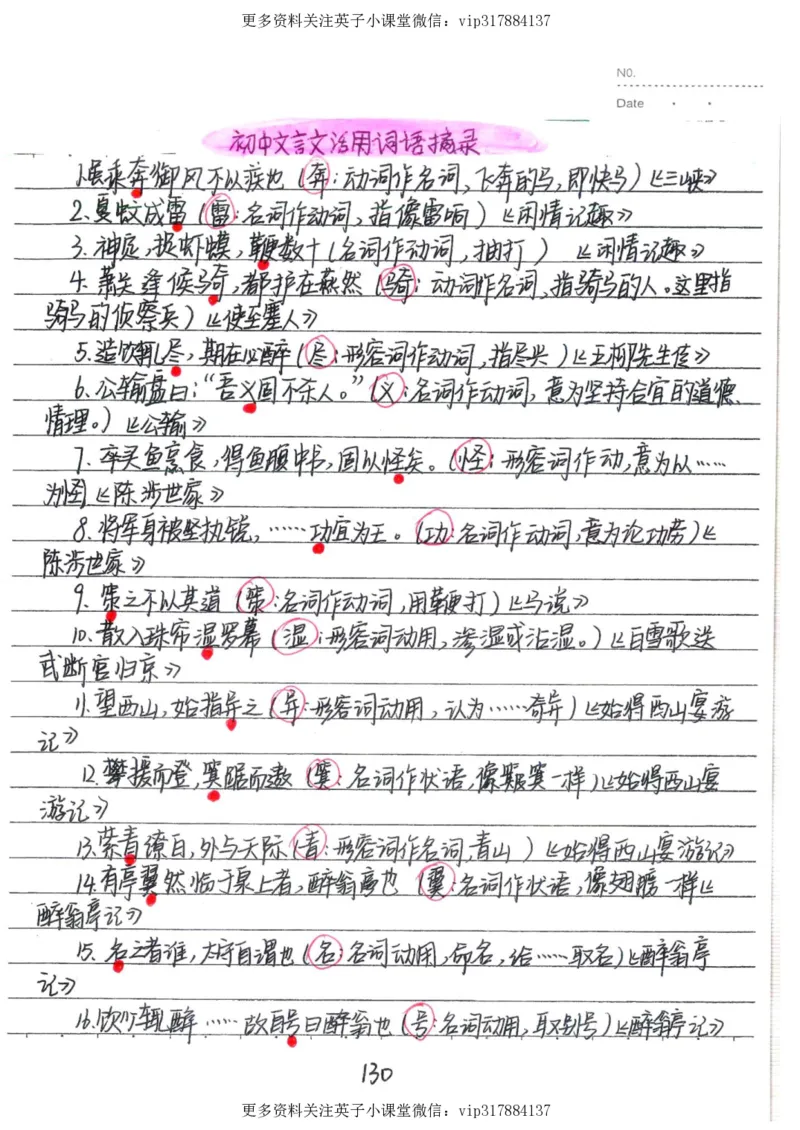 更多资料关注英子小课堂微信：vip317884137
NO.
Date
初中文言文活用词语摘录
1.虽乘奔御风不以疾也（奔：动词作名词，飞奔的马，即快马）《三峡》
2.夏蚊成雷（雷：名词作动词，指像雷响）《闲情记趣》
3.神定，捉虾蟆，鞭数十（名词作动词，抽打）《闲情记趣》
4.萧关逢候骑，都护在燕然（骑：动词作名词，指骑马的人。这里指
骑马的侦察兵）《使至塞上》
5.造饮辄尽，期在必醉（尽：形容词作动词，指尽兴）《五柳先生传》
6.公输盘曰：“吾义固不杀人。”（义：名词作动词，意为坚持合宜的道德
情理。）《公输》
7.卒买鱼烹食，得鱼腹中书，固以怪矣。（怪：形容词作动，意为以……
为怪《陈涉世家》
8.将军身被坚执锐，……功宜为王。（功：名词作动词，意为论功劳）《
陈涉世家》
9.策之不以其道（策：名词作动词，用鞭打）《马说》
10.散入珠帘湿罗幕（湿：形容词动用，渗湿或沾湿。）《白雪歌送
武断官归京》
11.望西山，始指异之（异：形容词动用，认为……奇异）《始得西山宴游
记》
12.攀援而登，箕踞而遨（箕：名词作状语，像簸箕一样）《始得西山宴
游记》
13.萦青缭白，外与天际（青：形容词作名词，青山）《始得西山宴游记》
14.有亭翼然临于泉上者，醉翁亭也（翼：名词作状语，像翅膀一样《
醉翁亭记》
15.名之者谁，太守自谓也（名：名词动用，命名，给……取名）《醉翁亭
记》
16.饮少辄醉……故自号曰醉翁也（号：名词动用，取别号）《醉翁亭记》
130
更多资料关注英子小课堂微信：vip317884137